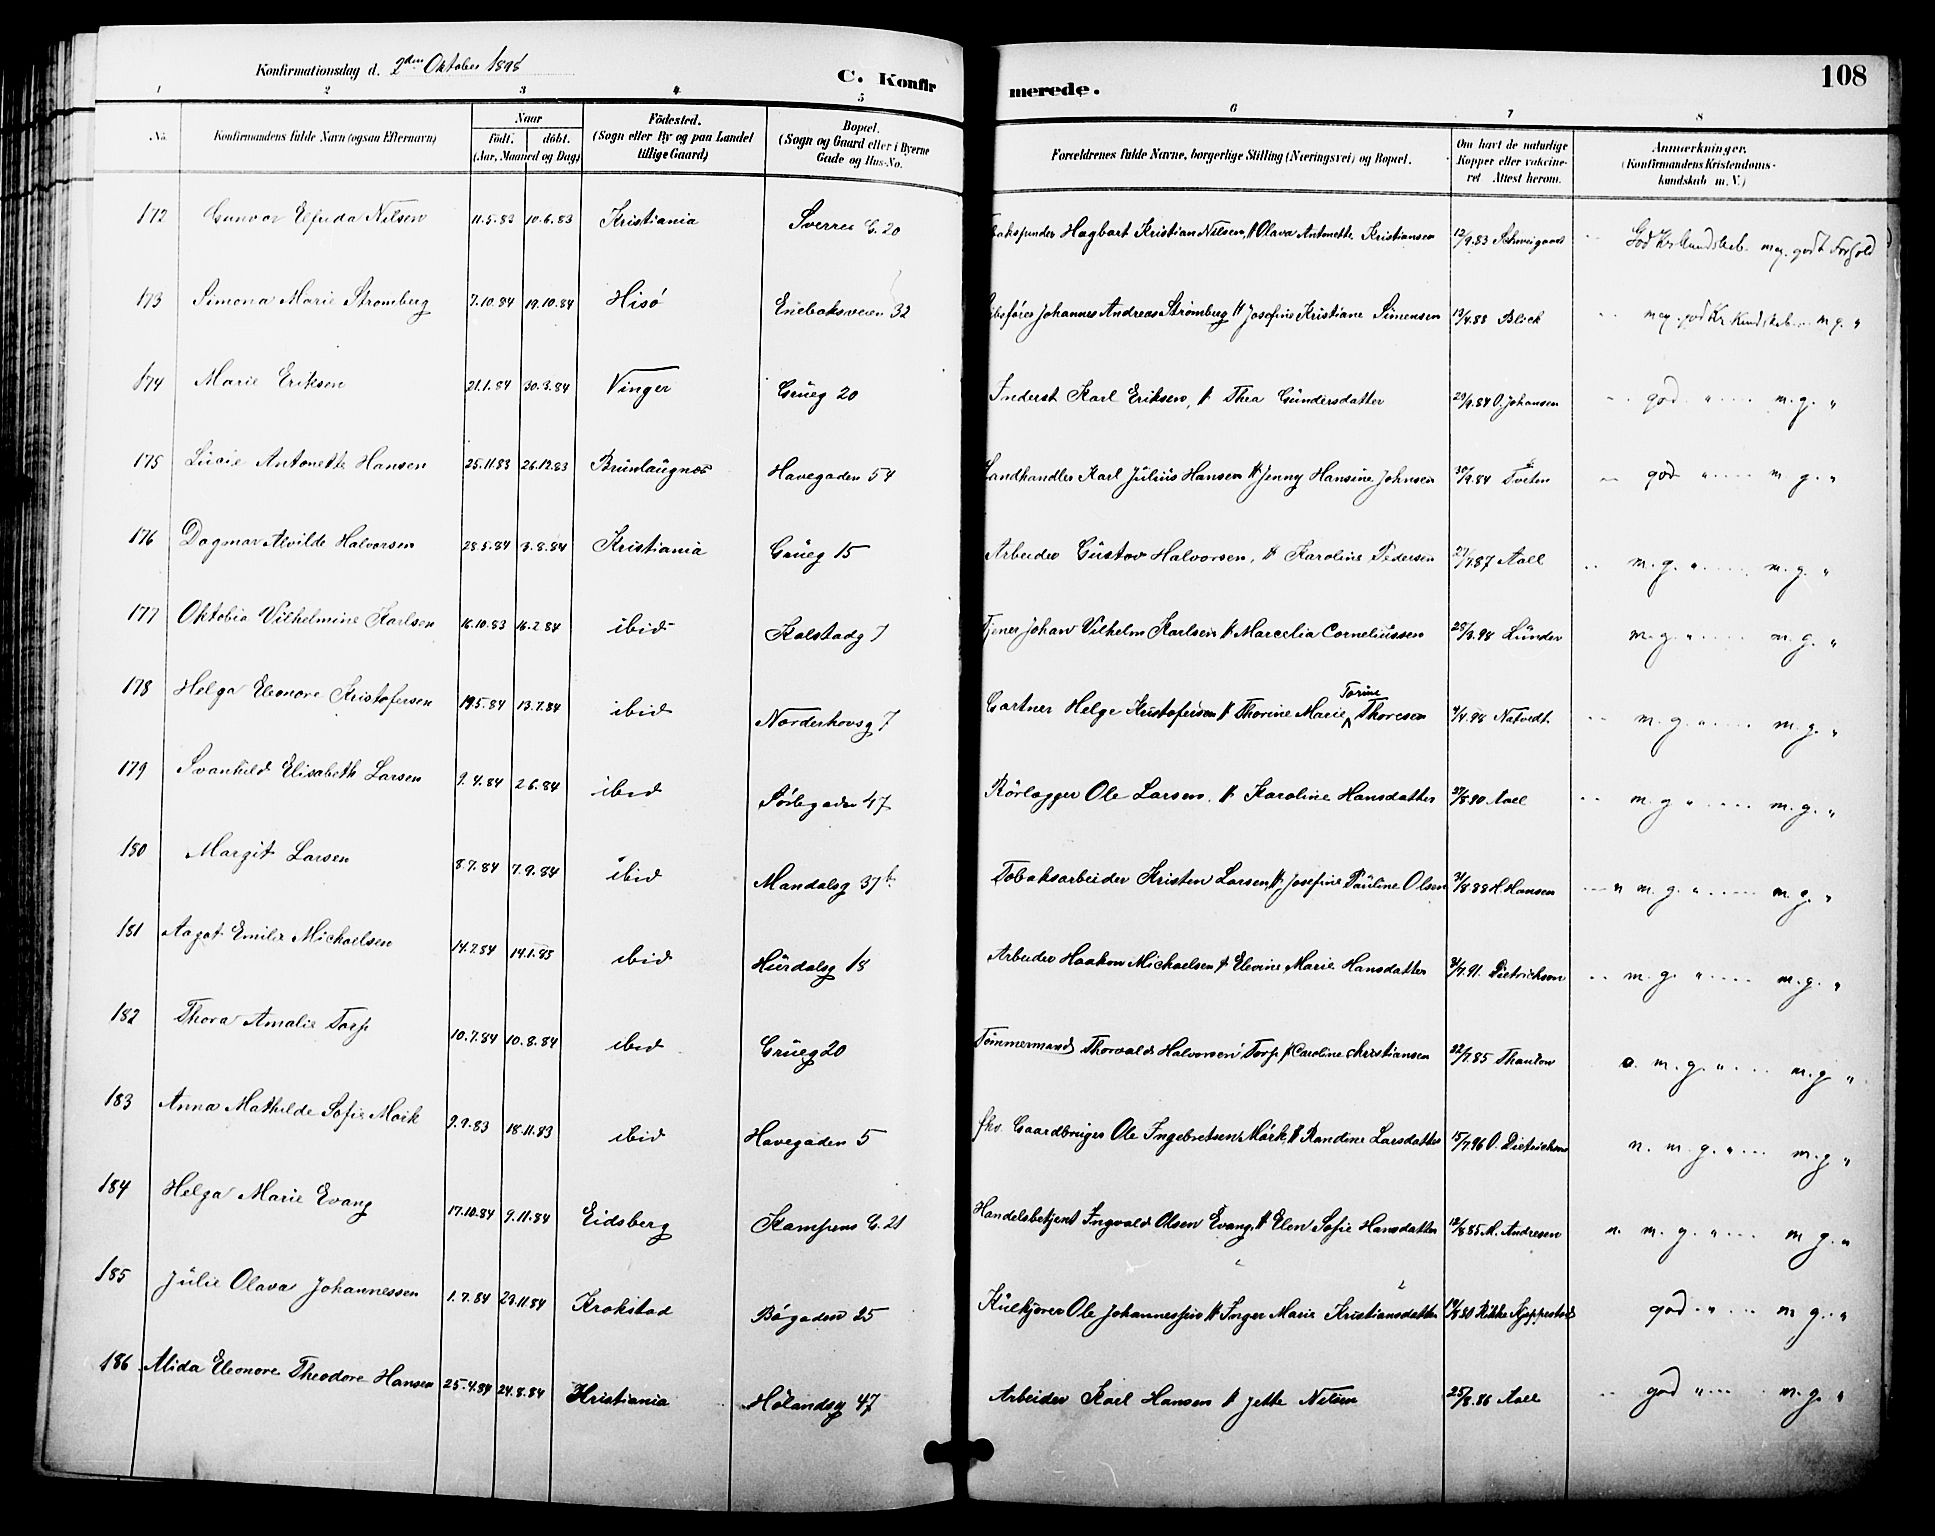 Konfirmationsdag d. 2den Oktober 1898
C. Konfirmerede.
108
1 2 3 4 5 6 7 8
No. Konfirmandens fulde Navn (ogsaa Efternavn) Naar födt. döbt. (Aar, Maaned og Dag) Födested. (Sogn eller By og paa Landet tillige Gaard) Bopæl. (Sogn og Gaard eller i Byerne Gade og Hus-No. Forældrenes fulde Navne, borgerlige Stilling (Næringsvei) og Bopæl. Om havt de naturlige Kopper eller vaccineret Attest herom. Anmærkninger. (Konfirmandens Kristendomskundskab m. V.)
172 Gunvor Elfrida Nilsen 11.5.83 10.6.83 Kristiania Sverres G. 20 Hagbart Kristian Nilsen, # Olava Antonette Kristiansen 12/9.83 Schweigaard God Kr Kundskab meg. godt Forhold
173 Simona Marie Strømberg 7.10.84 19.10.84 Hisø Enebaksveien 32 Johannes Andreas Strømberg # Josefine Kristiane Simensen Block meg. god Kr. Kundskab m g. "
174 Marie Eriksen 21.1.84 30.3.84 Vinger Grüeg 20 Inderst Karl Eriksen, # Thea Gündersdatter 29/9.84 O. Johansen god " m. g. "
175 Lücie Antonette Hansen 25.11.83 26.12.83 Brunlaugnæs Havegaden 54 Landhandler Karl Jülius Hansen # Jenny Hansine Johnsen 30/9.84 Tveten god " m g. "
176 Dagmar Alvilde Halvorsen 28.5.84 3.8.84 Kristiania Grüeg 15 Arbeider Güstav Halvorsen, # Karoline Pedersen 27/7.87 Aall m. g. " m. g. "
177 Oktobia Vilhelmine Karlsen 16.10.83 16.2.84 ibid Kalstadg 7 Tjener Johan Vilhelm Karlsen # Marcelia Corneliussen 28/3.98 Lünder m. g. " m. g. "
178 Helga Eleonore Kristofersen 19.5.84 13.7.84 ibid Norderhovsg 7 Gartner Helge Kristofersen # Thorine Marie Torine Thoresen 4/4.98 Natvedt m. g. " m. g. "
179 Svanhild Elisabeth Larsen 9.4.84 2.6.84 ibid Sørlegaden 47 Rörlægger Ole Larsen, # Karoline Hansdatter Aall m. g " m. g. "
180 Margit Larsen 8.7.84 7.9.84 ibid Mandalsg 37b Tobaksarbeider Kristen Larsen # Josefine Pauline Olsen H. Hansen " m. g. " m. g. "
181 Aagot Emilie Michaelsen 14.7.84 14.1.85 ibid Hürdalsg 18 Arbeider Haakon Michaelsen # Elevine Marie Hansdatter Dietrichson m. g. " m. g. "
182 Thora Amalie Torp 10.7.84 10.8.84 ibid Grüeg 20 Tömmermand Thorvald Halvorsen Torp # Caroline Kristiansen 22/7.85 Thaulow m. g. " m. g "
183 Anna Mathilde Sofie Mørk 9.9.83 18.11.83 ibid Havegaden 5 fhv. Gaardbruger Ole Ingebretsen Mørk, # Randine Larsdatter 15/7.96 O. Dietrichson m. g. " m. g "
184 Helga Marie Evang 17.10.84 9.11.84 Eidsberg Kampens G. 21 Handelsbetjent Ingvald Olsen Evang, # Elen Sofie Hansdatter 12/8.85 M. Andresen m. g. " m g. "
185 Jülie Olava Johannessen 1.7.84 23.11.84 Krokstad Bøgaden 25 Külkjører Ole Johannessen # Inger Marie Kristiansdatter Rikke Kjeppestad god " m g. "
186 Alida Eleonore Theodore Hansen 25.4.84 24.8.84 Kristiania Hølandsg 47 Arbeider Karl Hansen # Jette Nilsen 25/8.86 Aall god " m. g. "